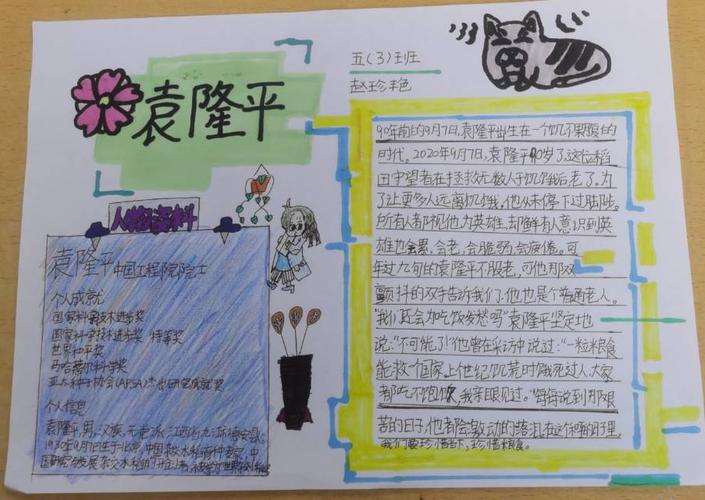 袁隆平
五(3)班
赵珍艳
90年前的9月7日,袁隆平出生在一个饥不果腹的
时代。2020年9月7日,袁隆平90岁了,这位稻
田守望者在拯救无数人于饥饿后老了。为
了让更多人远离饥饿,他从未停下过脚步。
所有人都视他为英雄,却鲜有人意识到英
雄也会累,会老,会脆弱,会疲倦。可
年过九旬的袁隆平不服老,可他那双
颤抖的双手告诉我们,他也是个普通老人。
"我们还会为吃饭发愁吗"袁隆平坚定地
说:"不可能了!"他曾在采访中说过:"一粒粮食
能救一个国家,上世纪饥荒时饿死过人,大家
都吃不饱饭,我亲眼见过。"每每说到那艰
苦的日子,他都会激动的
我们要珍惜当下,珍惜粮食。
人物资料
袁隆平 中国工程院院士
个人成就
国家科学技术进步奖
国家科学技术进步奖 特等奖
世界和平奖
马哈蒂尔科学奖
亚太种子协会(APSA)杰出研究成就奖
个人信息
袁隆平,男,汉族,无党派,江西省九江市德安县,
1930年9月7日生于北京,中国杂交水稻育种专家,中
国研究与发展杂交水稻的开创者,被誉为"世界